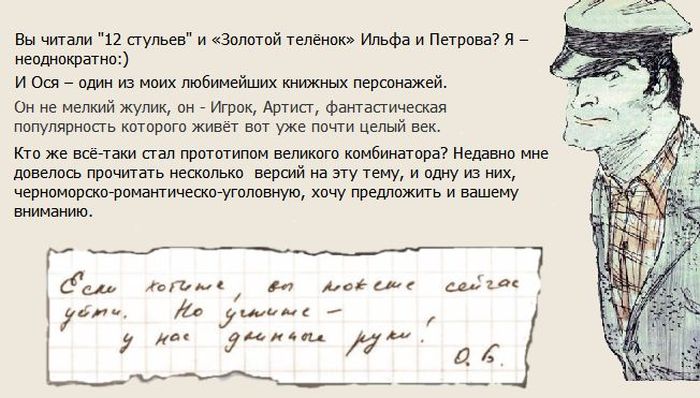 Вы читали "12 стульев" и «Золотой телёнок» Ильфа и Петрова? Я –
неоднократно:)
И Ося – один из моих любимейших книжных персонажей.
Он не мелкий жулик, он - Игрок, Артист, фантастическая
популярность которого живёт вот уже почти целый век.
Кто же всё-таки стал прототипом великого комбинатора? Недавно мне
довелось прочитать несколько версий на эту тему, и одну из них,
черноморско-романтическо-уголовную, хочу предложить и вашему
вниманию.
Если хотите, вы можете сейчас
уйти. Но учтите –
у нас длинные руки!
О. Б.